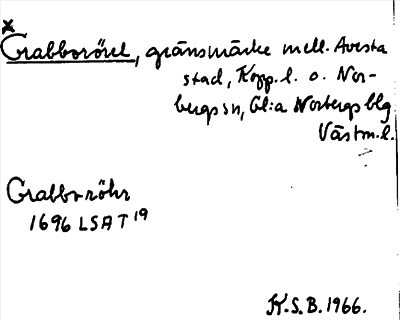 x
Grabborörel, gränsmärke mell. Avesta
stad, Kopp. l. o. Nor-
bergs sn, Gl:a Norbergs blg
Västm. l.
Grabbo röhr
1696 LSA T 19
K.S.B. 1966.